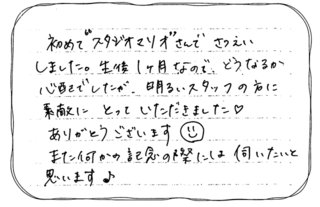 初めて"スタジオマリオ"さんで さつえい
しました。生後1ヶ月なので、どうなるか
心配でしたが、明るいスタッフの方に
素敵に とって いただきました♡
ありがとう ございます
また何かの記念の際には 伺いたいと
思います♪